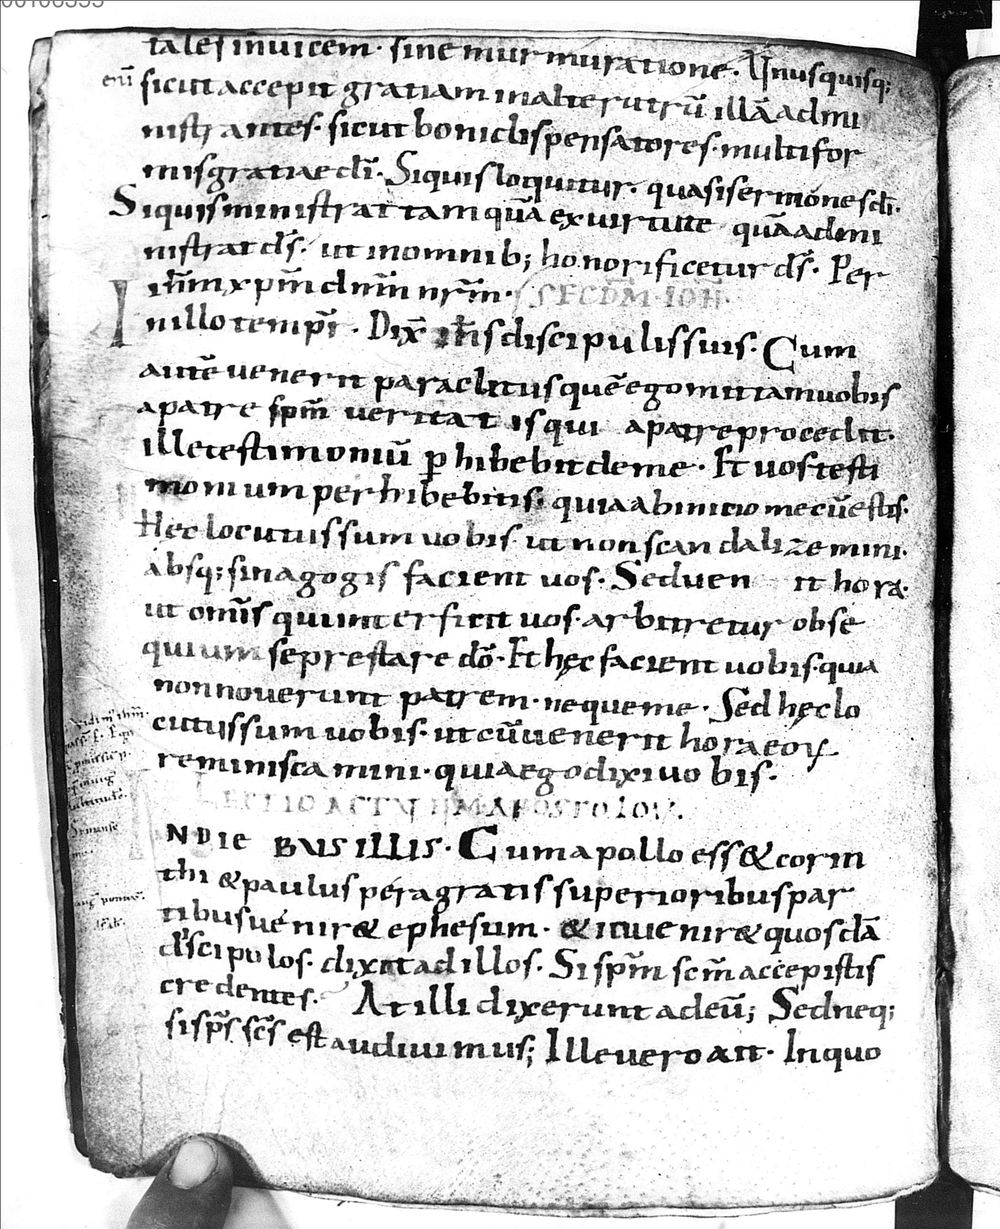 tales inuicem · sine murmuratione · Unusquisq;
enī sicut accepit gratiam inalterutrū illā admi
nistrantes · sicut boni dispensatores · multifor
mis gratiae dī · Siquis loquitur · quasi sermones dī ·
Siquis ministrat tamquā ex uirtute quā admi
nistrat ds̄ · ut in omnib; honorificetur ds̄ · Per
ih̄m xp̄m dnm̄ nrm̄ · SECDM̄ IOH̄
In illo tempr̄ · Dix̄ ih̄s discipulis suis · Cum
autē uenerit paraclitus quē ego mittam uobis
a patre sp̄m ueritatis qui a patre procedit ·
ille testimoniū p hibebit de me · Et uos testi
monium perhibebitis · quia ab initio mecū estis ·
Hec locutus sum uobis ut non scandalizemini ·
absq; sinagogis facient uos · Sed uen it hora ·
ut omīs qui interficit uos · arbitretur obse
quium se prestare dō · Et hęc facient uobis · quia
non nouerunt patrem · neque me · Sed hęc lo
cutus sum uobis · ut cū uenerit hora eoꝝ
reminiscamini · quia ego dixi uobis ·
LECTIO ACTUUM APOSTOLOꝜ ·
IN DIEBUS ILLIS · Cum apollo ess& corin
thi & paulus peragratis superioribus par
tibus uenir& ephesum · & inuenir& quosdā
discipulos · dixit ad illos · Si sp̄m scm̄ accepistis
credentes · At illi dixerunt ad eū; Sed neq;
si sp̄s scs̄ est audiuimus; Ille uero ait · In quo